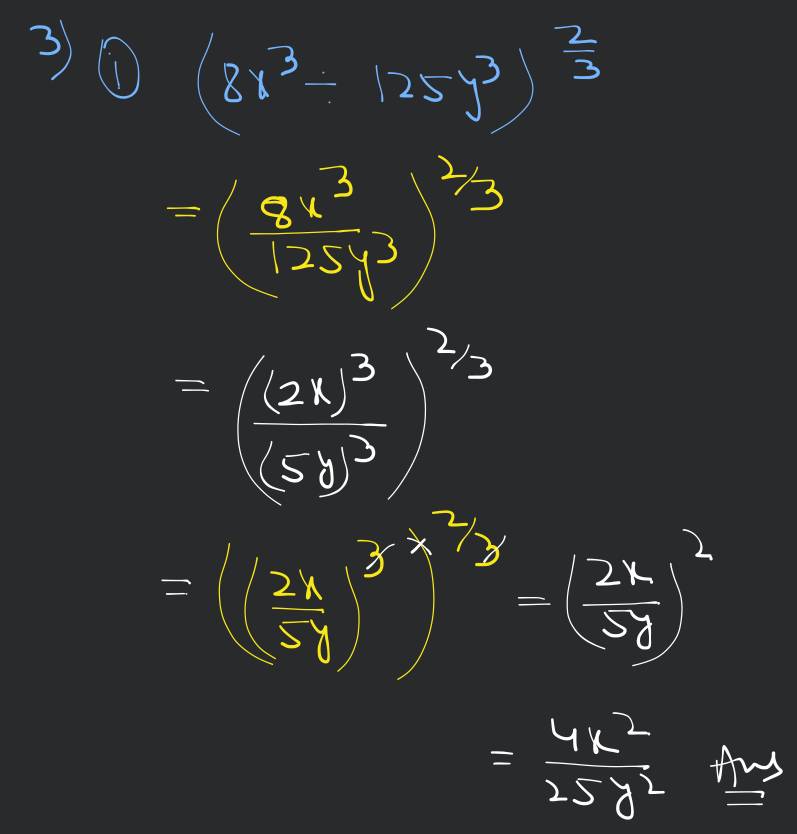 3) ① (8x³ ÷ 125y³)^(2/3)
= (8x³/125y³)^(2/3)
= ((2x)³/(5y)³)^(2/3)
= ((2x/5y)^3)^(×2/3) = (2x/5y)²
= 4x²/25y² Ans